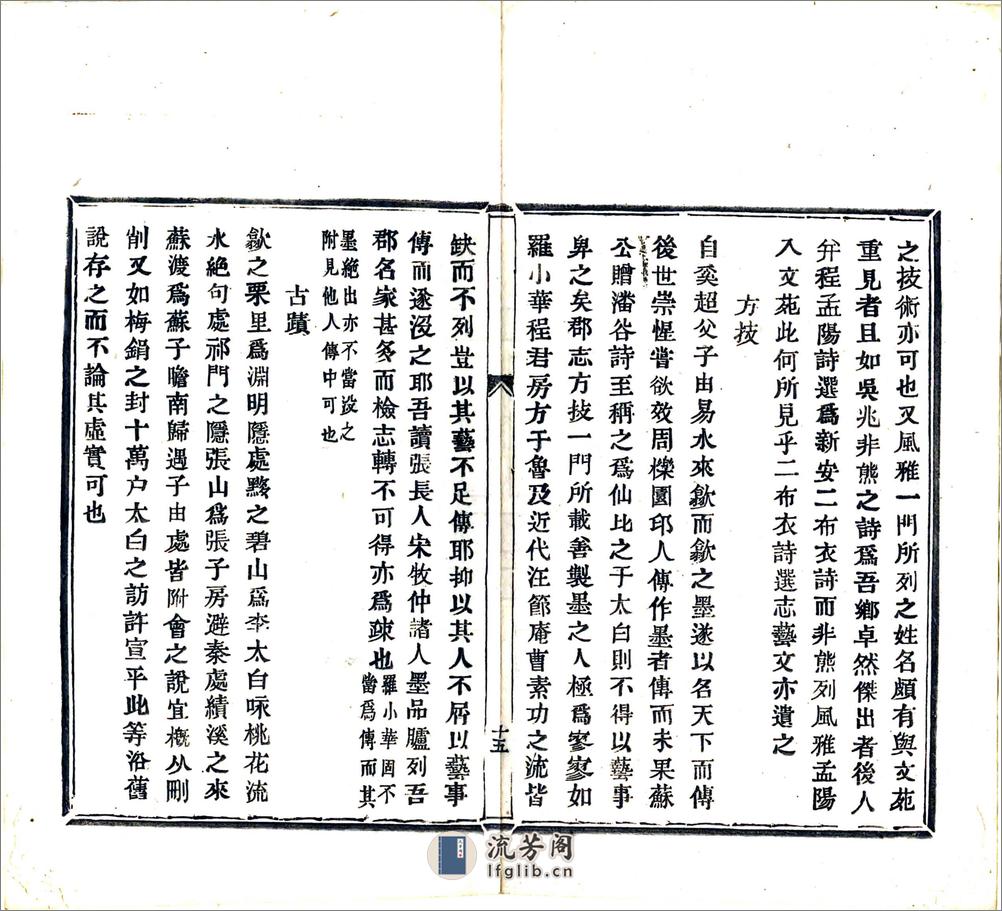 之技術亦可也又風雅一門所列之姓名頗有與文苑
重見者且如吳兆非熊之詩爲吾鄉卓然傑出者後人
弁程孟陽詩選爲新安二布衣詩而非熊列風雅孟陽
入文苑此何所見乎二布衣詩選志藝文亦遺之
方技
自奚超父子由易水來歙而歙之墨遂以名天下而傳
後世崇惺嘗欲效周櫟園印人傳作墨者傳而未果蘇
公贈潘谷詩至稱之爲仙比之于太白則不得以藝事
臯之矣郡志方技一門所載善製墨之人極爲寥寥如
羅小華程君房方于魯及近代汪節庵曹素功之流皆
十五
缺而不列豈以其藝不足傳耶抑以其人不屑以藝事
傳而遂沒之耶吾讀張長人宋牧仲諸人墨品臚列吾
郡名家甚多而檢志轉不可得亦爲疎也羅小華固不
當爲傳而其
墨絶出亦不當設之
附見他人傳中可也
古蹟
歙之栗里爲淵明隱處黟之碧山爲李太白咏桃花流
水絕句處祁門之隱張山爲張子房避秦處績溪之來
蘇渡爲蘇子瞻南歸遇子由處皆附會之說宜概从刪
削又如梅鋗之封十萬户太白之訪許宣平此等沿舊
說存之而不論其虛實可也
流芳阁
lfglib.cn